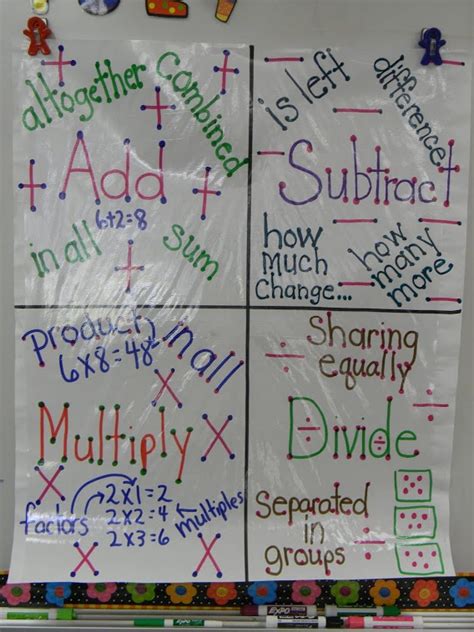 altogether
combined
Add
6+2=8
in all
sum
is left
difference
Subtract
how
Much
Change...
how
many
more
product
6x8=48
in all
Multiply
factors
2x1=2
2x2=4
2x3=6
multiples
Sharing
equally
Divide
Separated
in
groups
EXPO